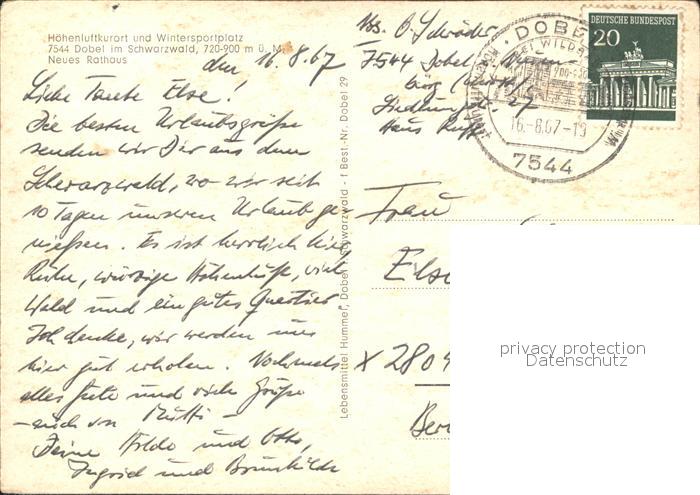 Höhenluftkurort und Wintersportplatz
7544 Dobel im Schwarzwald, 720-900 m ü. M.
Neues Rathaus
den 16.8.67
Liebe Tante Else!
Die besten Urlaubsgrüße
senden wir Dir aus dem
Schwarzwald, wo wir seit
10 Tagen unseren Urlaub ge-
nießen. Es ist herrlich hier
Ruhe, würzige Höhenluft, viel
Wald und ein gutes Quartier
Ich denke, wir werden uns
hier gut erholen. Nochmals
alles Gute und viele Grüße
- auch von Mutti -
Deine und Otto,
Ingrid und Brunhilde
Lebensmittel Hummel, Dobel Schwarzwald - f Best.-Nr. Dobel 29
Abs. O. Schröder
7544 Dobel
27
Haus
DOBEL
16.-8.67-19
7544
DEUTSCHE BUNDESPOST
20
Frau
Else
X 2804
Ber
privacy protection
Datenschutz